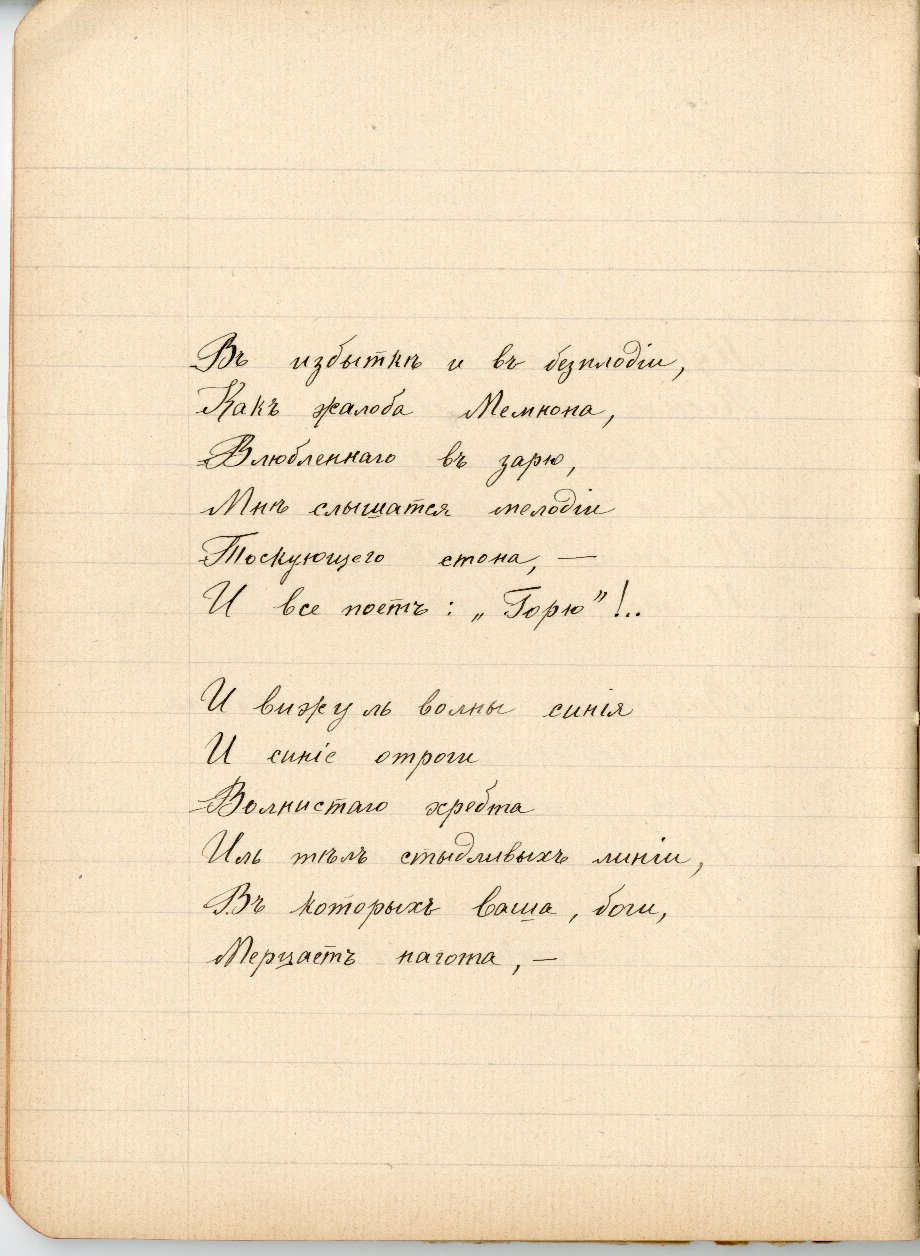 Въ избыткѣ и въ безплодіи,
Какъ жалоба Мемнона,
Влюбленнаго въ зарю,
Мнѣ слышатся мелодіи
Тоскующего стона, —
И все поетъ: „Горю”!..
И вижу ль волны синія
И синіе отроги
Волнистаго хребта
Иль тѣлъ стыдливыхъ линіи,
Въ которыхъ ваша, боги,
Мерцаетъ нагота, —